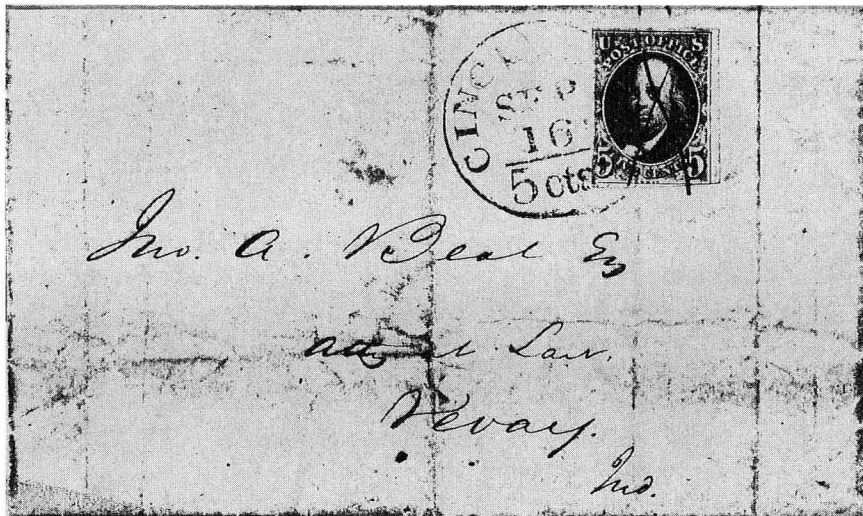 CINCI
SEP
16
5 cts
U S
POST OFFICE
5 5
Jno. A. Beal Esq
Atty at Law.
Vevay.
Ind.